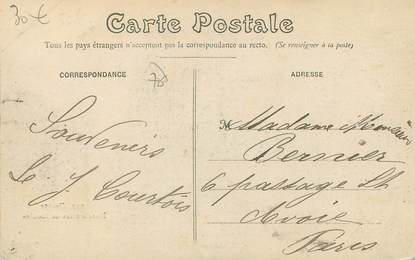 30 €
Carte Postale
Tous les pays étrangers n'acceptent pas la correspondance au recto. (Se renseigner à la poste)
CORRESPONDANCE
Souvenirs
J Courtois
ADRESSE
M Madame & Monsieur
Bernier
6 passage St
Avoie
Paris